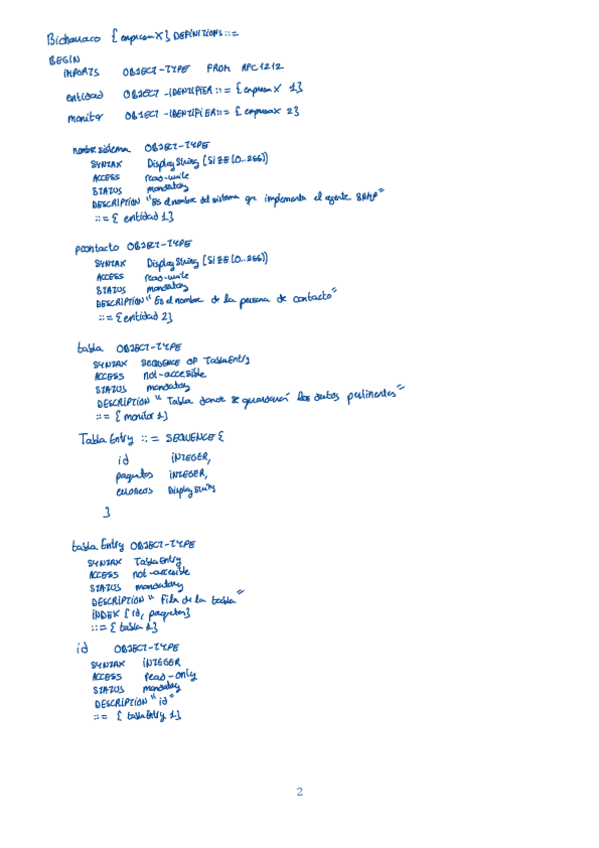 Bichauaco {empresaX} DEFINITIONS ::=
BEGIN
IMPORTS OBJECT-TYPE FROM RFC1212
entidad OBJECT-IDENTIFIER ::= {empresaX 1}
monitor OBJECT-IDENTIFIER ::= {empresaX 2}
nombresistema OBJECT-TYPE
SYNTAX DisplayString (SIZE(0..255))
ACCESS read-write
STATUS mandatory
DESCRIPTION "Es el nombre del sistema que implementa el agente SNMP"
::= {entidad 1}
pcontacto OBJECT-TYPE
SYNTAX DisplayString (SIZE(0..255))
ACCESS read-write
STATUS mandatory
DESCRIPTION "Es el nombre de la persona de contacto"
::= {entidad 2}
tabla OBJECT-TYPE
SYNTAX SEQUENCE OF TablaEntry
ACCESS not-accesible
STATUS mandatory
DESCRIPTION "Tabla donde se guardará los datos pertinentes"
::= {monitor 1}
TablaEntry ::= SEQUENCE {
id INTEGER,
paquetes INTEGER,
erroneos DisplayString
}
tablaEntry OBJECT-TYPE
SYNTAX TablaEntry
ACCESS not-accesible
STATUS mandatory
DESCRIPTION "Fila de la tabla"
INDEX {id, paquetes}
::= {tabla 1}
id OBJECT-TYPE
SYNTAX INTEGER
ACCESS read-only
STATUS mandatory
DESCRIPTION "id"
::= {tablaEntry 1}
2